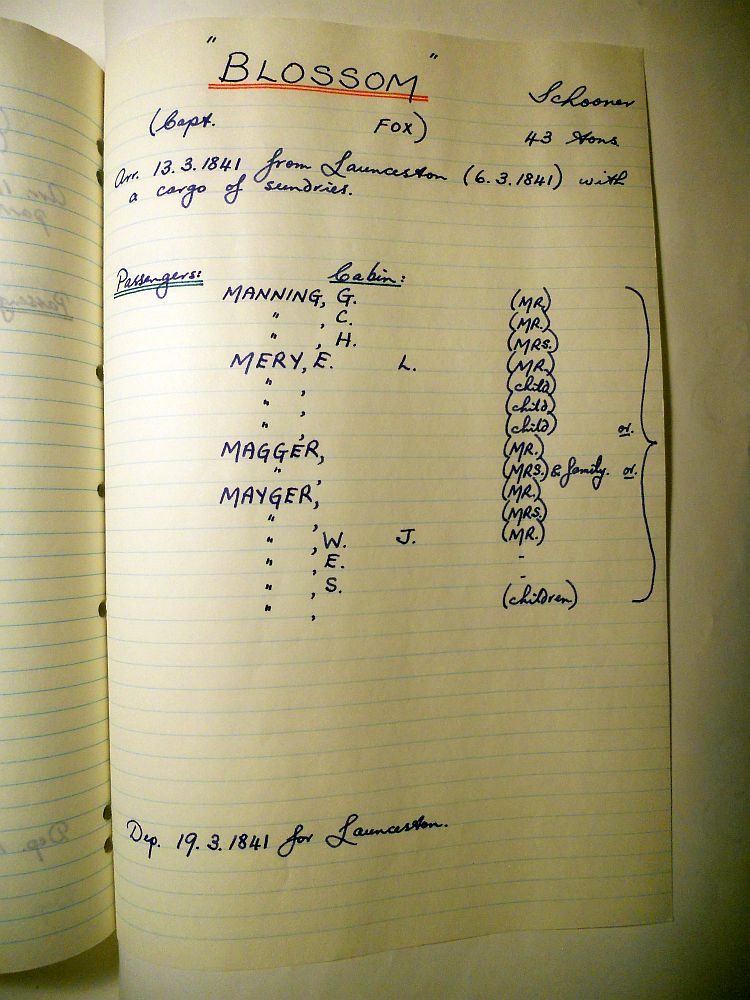 "BLOSSOM"
Schooner
(Capt. FOX) 43 tons
Arr. 13.3.1841 from Launceston (6.3.1841) with
a cargo of sundries.
Passengers: Cabin:
MANNING, G. (MR.)
" , C. (MR.)
" , H. (MRS.)
MERY, E. L. (MR.)
" , (child)
" , (child)
" , (child) or.
MAGGER, (MR.)
" (MRS.) & family. or.
MAYGER, (MR.)
" , (MRS.)
" , W. J. (MR.)
" , E. -
" , S. -
" , (children)
Dep. 19.3.1841 for Launceston.